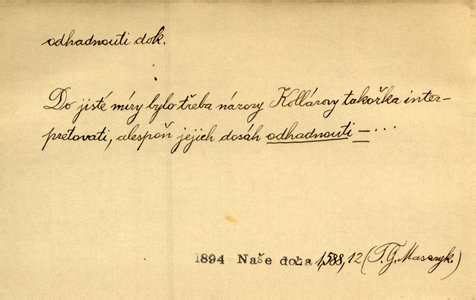 odhadnouti dok.
Do jisté míry bylo třeba názory Kollárovy takořka inter-
pretovati, alespoň jejich dosáh odhadnouti – ...
1894 Naše doba 1,588,12 (T. G. Masaryk.)